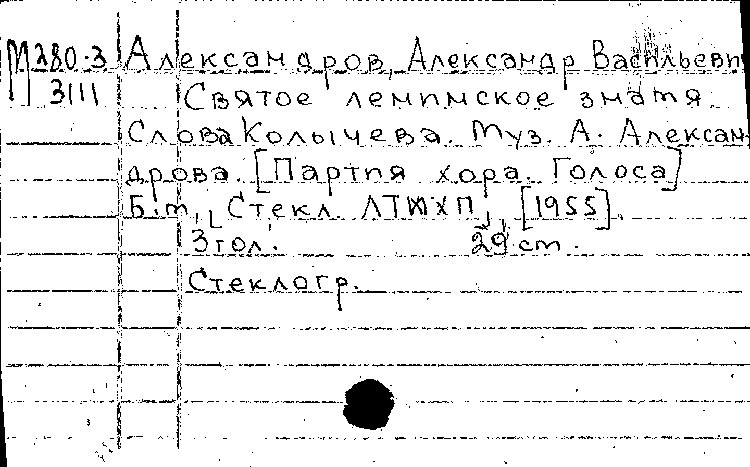 М280-3 Александров, Александр Васильевич
3111 Святое ленинское знамя.
Слова Колычева. Муз. А. Алексан-
дрова. [Партия хора. Голоса]
Б.м., Стекл. ЛТЮХП, [1955].
3 гол. 29 см.
Стеклогр.